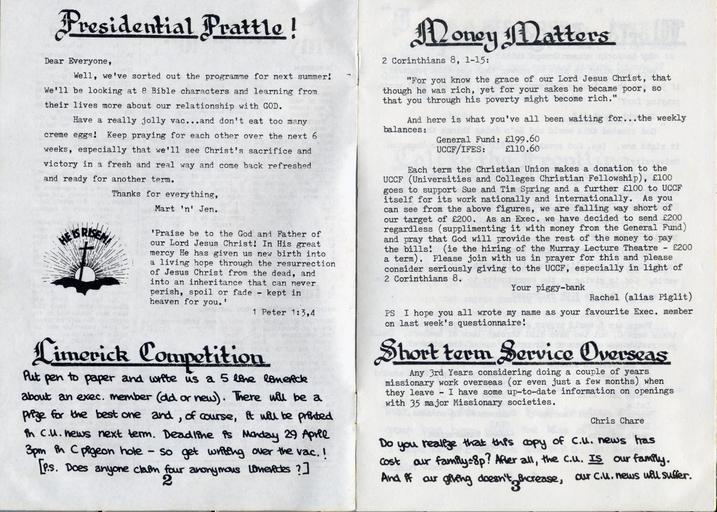 Presidential Prattle!
Dear Everyone,
Well, we've sorted out the programme for next summer!
We'll be looking at 8 Bible characters and learning from
their lives more about our relationship with GOD.
Have a really jolly vac...and don't eat too many
creme eggs! Keep praying for each other over the next 6
weeks, especially that we'll see Christ's sacrifice and
victory in a fresh and real way and come back refreshed
and ready for another term.
Thanks for everything,
Mart 'n' Jen.
HE IS RISEN!
'Praise be to the God and Father of
our Lord Jesus Christ! In His great
mercy He has given us new birth into
a living hope through the resurrection
of Jesus Christ from the dead, and
into an inheritance that can never
perish, spoil or fade - kept in
heaven for you.'
1 Peter 1:3,4
Limerick Competition
Put pen to paper and write us a 5 line limerick
about an exec. member (old or new). There will be a
prize for the best one and , of course, it will be printed
in C.U. news next term. Deadline is Monday 29 April
3pm in C pigeon hole - so get writing over the vac.!
[P.S. Does anyone claim four anonymous limericks ?]
2
Money Matters
2 Corinthians 8, 1-15:
"For you know the grace of our Lord Jesus Christ, that
though he was rich, yet for your sakes he became poor, so
that you through his poverty might become rich."
And here is what you've all been waiting for...the weekly
balances:
General Fund: £199.60
UCCF/IFES: £110.60
Each term the Christian Union makes a donation to the
UCCF (Universities and Colleges Christian Fellowship), £100
goes to support Sue and Tim Spring and a further £100 to UCCF
itself for its work nationally and internationally. As you
can see from the above figures, we are falling way short of
our target of £200. As an Exec. we have decided to send £200
regardless (supplimenting it with money from the General Fund)
and pray that God will provide the rest of the money to pay
the bills! (ie the hiring of the Murray Lecture Theatre - £200
a term). Please join with us in prayer for this and please
consider seriously giving to the UCCF, especially in light of
2 Corinthians 8.
Your piggy-bank
Rachel (alias Piglit)
PS I hope you all wrote my name as your favourite Exec. member
on last week's questionnaire!
Short term Service Overseas
Any 3rd Years considering doing a couple of years
missionary work overseas (or even just a few months) when
they leave - I have some up-to-date information on openings
with 35 major Missionary societies.
Chris Chare
Do you realize that this copy of C.U. news has
cost our family 8p? After all, the C.U. IS our family.
And if our giving doesn't increase, our C.U. news will suffer.
3